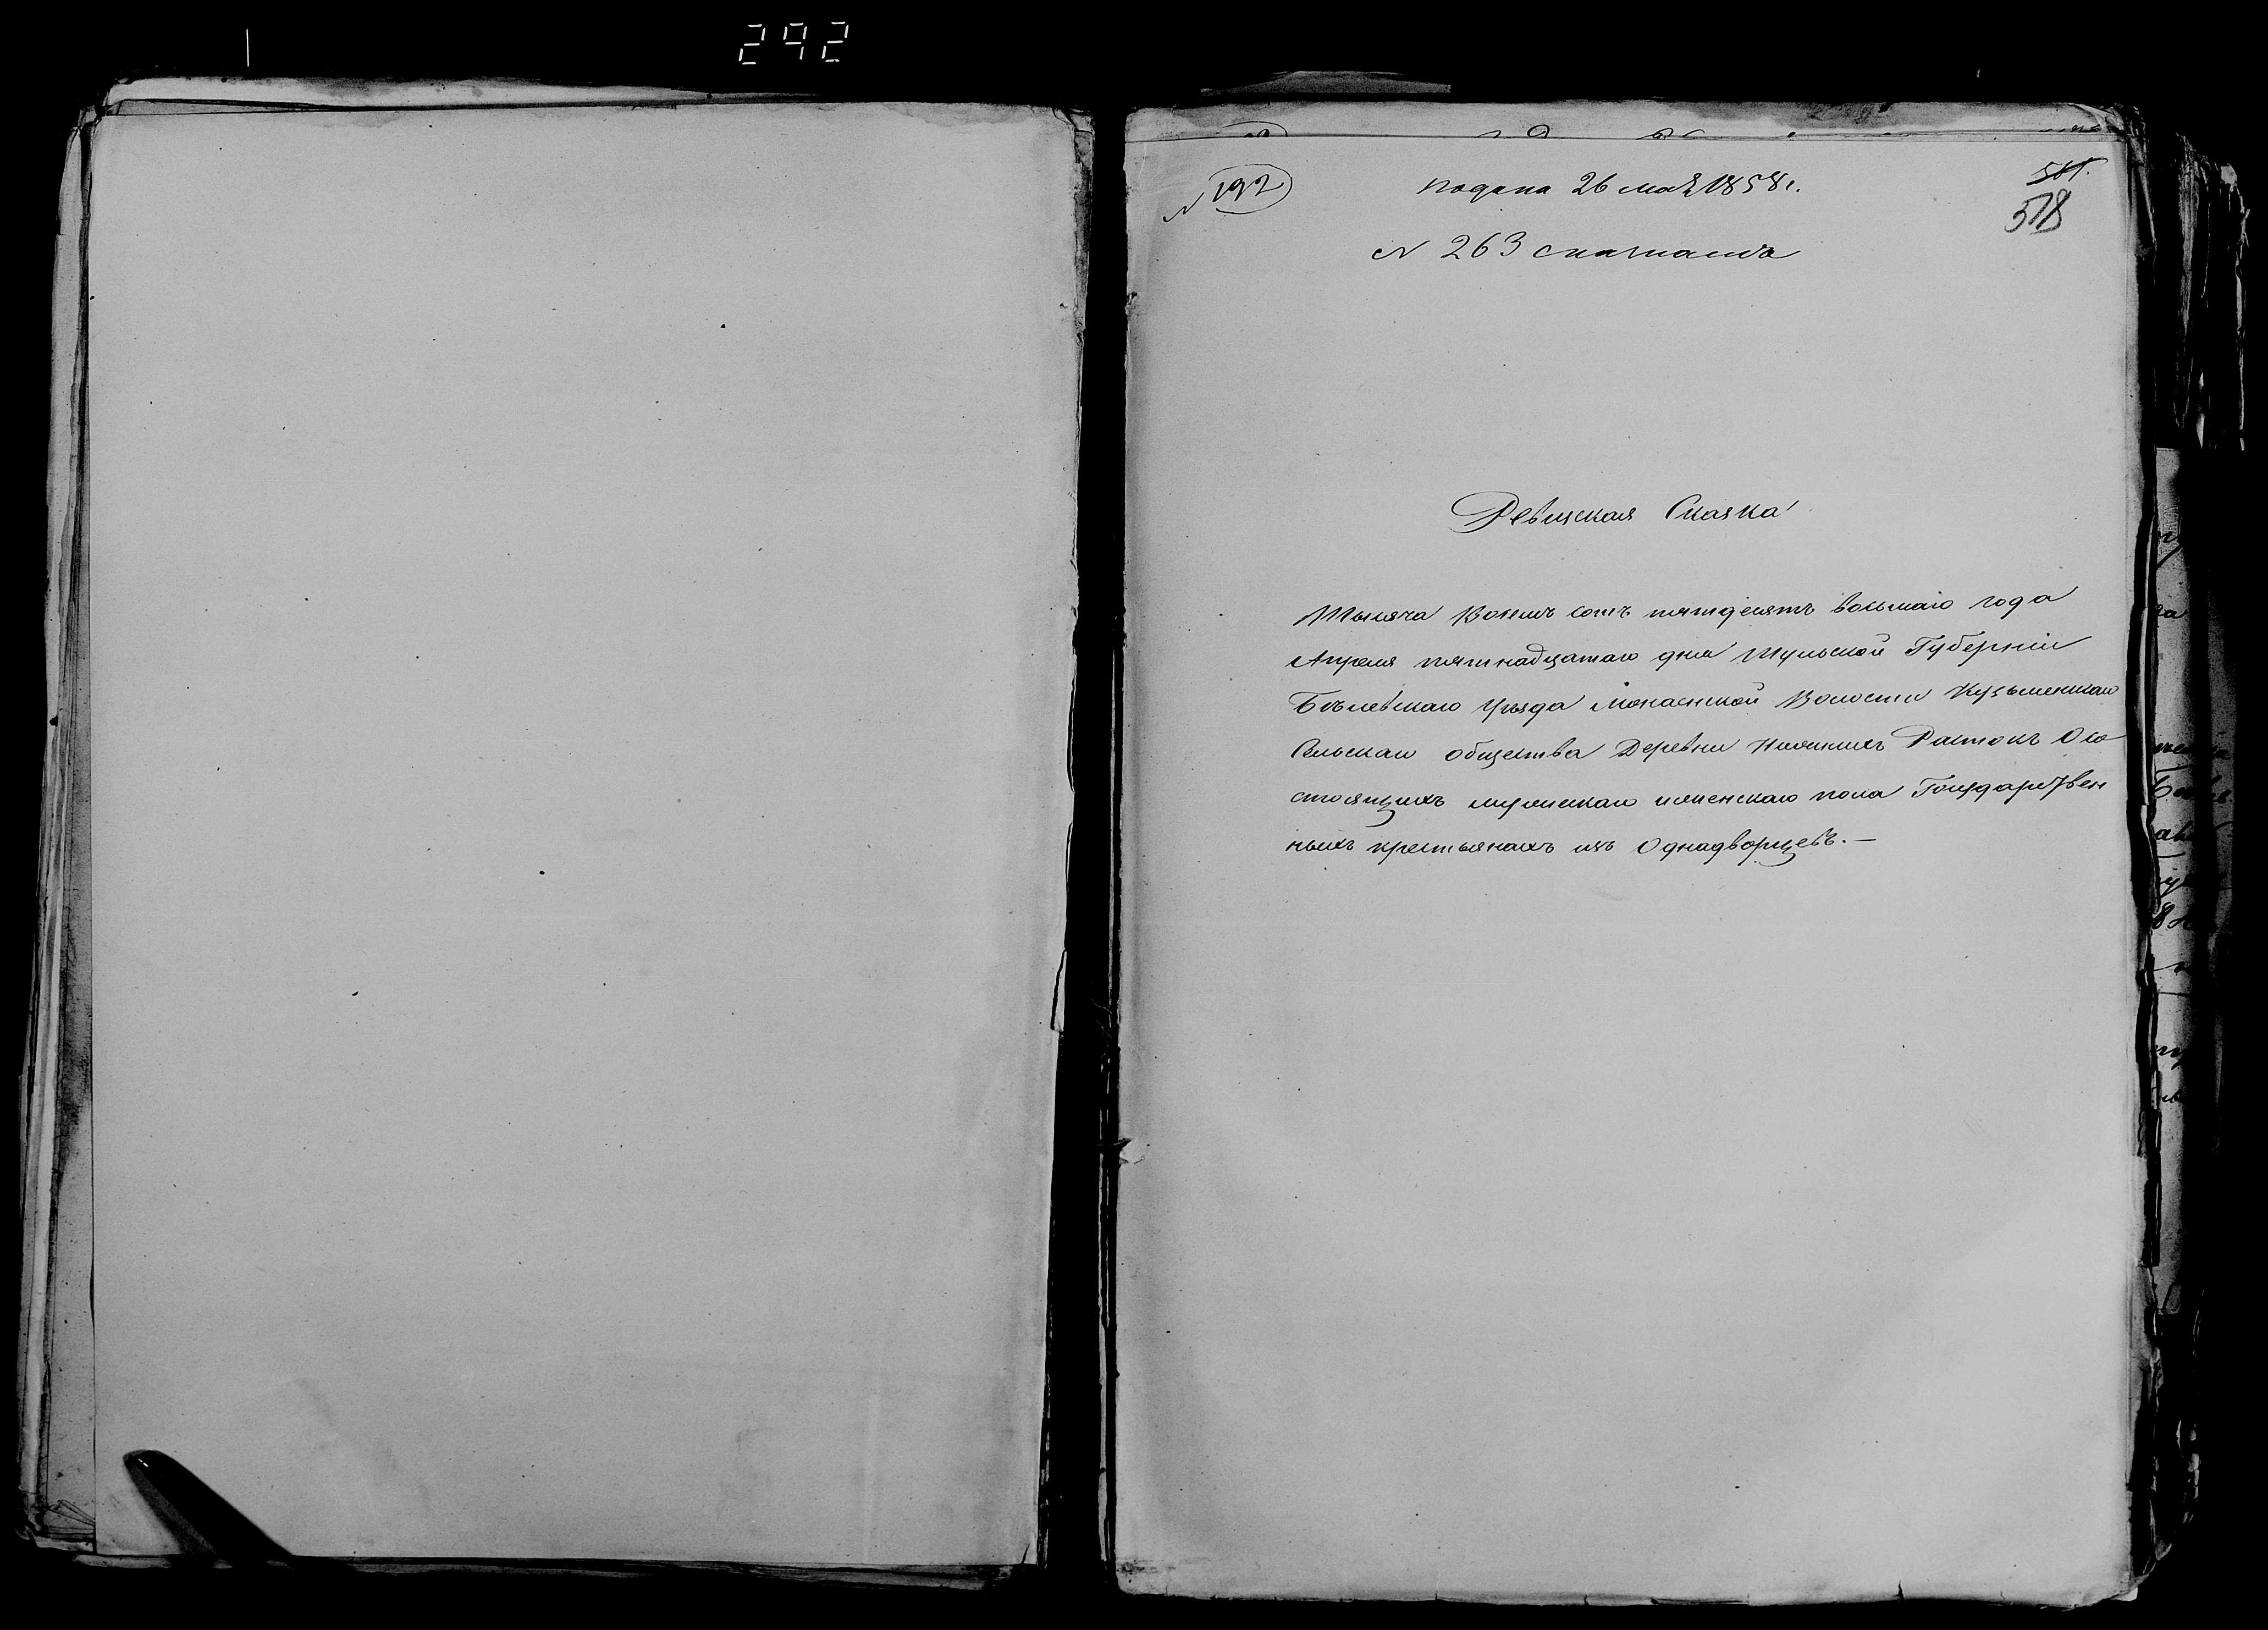 292
N 192
подана 26 мая 1858 г.
518
N 263
Ревизская Сказка
Тысяча Восемь сотъ пятдесятъ восьмаго года
Апреля пятнадцатаго дня Тульской Губерніи
Бѣлевскаго уѣзда Монаенской Волости Кузьменскаго
Сельскаго общества Деревни Растокъ О со
стоящихъ мужескаго женскаго пола Государствен
ныхъ крестьянахъ изъ Однадворцевъ.—